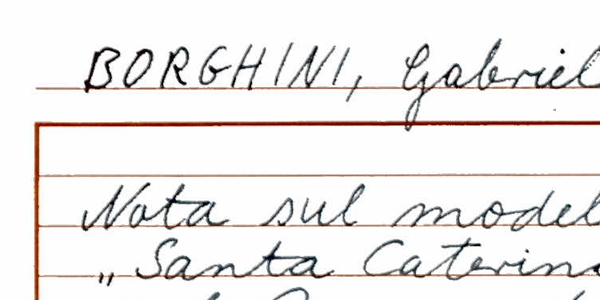 BORGHINI, Gabriel
Nota sul model
„Santa Caterina